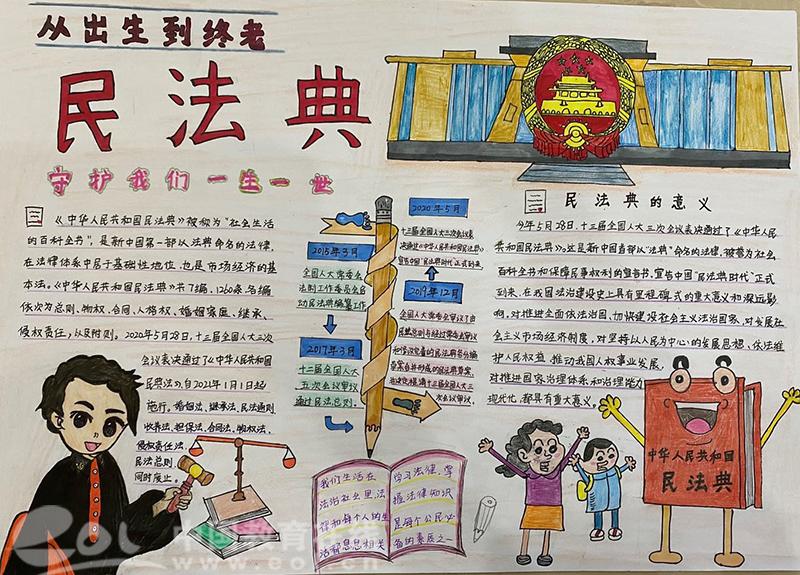 从出生到终老
民法典
守护我们一生一世
《中华人民共和国民法典》被称为"社会生活
的百科全书"，是新中国第一部以法典命名的法律，
在法律体系中居于基础性地位，也是市场经济的基
本法。《中华人民共和国民法典》共7编、1260条，各编
依次为总则、物权、合同、人格权、婚姻家庭、继承、
侵权责任，以及附则。2020年5月28日，十三届全国人大三次
会议表决通过了《中华人民共和国
民法典》，自2021年1月1日起
施行，婚姻法、继承法、民法通则
收养法、担保法、合同法、物权法、
侵权责任法、
民法总则
同时废止。
2015年3月
全国人大常委会
法制工作委员会启
动民法典编纂工作
2017年3月
十二届全国人大
五次会议审议
通过民法总则。
2020年5月
十三届全国人大三次会议表
决通过《中华人民共和国民法典》，
宣告中国"民法典时代"正式到来
2019年12月
全国人大常委会审议了由
民法总则与经过常委会审议
和修改完善的民法典各分编
草案合并形成的民法典草案，
并决定提请十三届全国人大三
次会议审议。
民法典的意义
今年5月28日，十三届全国人大三次会议表决通过了《中华人民
共和国民法典》。这是新中国首部以"法典"命名的法律，被誉为社会
百科全书和保障民事权利的宣告书，宣告中国"民法典时代"正式
到来，在我国法治建设史上具有里程碑式的重大意义和深远影
响，对推进全面依法治国、加快建设社会主义法治国家，对发展社
会主义市场经济制度，对坚持以人民为中心的发展思想、依法维
护人民权益、推动我国人权事业发展，
对推进国家治理体系和治理能力
现代化，都具有重大意义。
我们生活在
法治社会里，法
律和每个人的生
活都息息相关
学习法律，掌
握法律知识
是每个公民必
备的素质之一
中华人民共和国
民法典
eol
中国教育在线
www.eol.cn